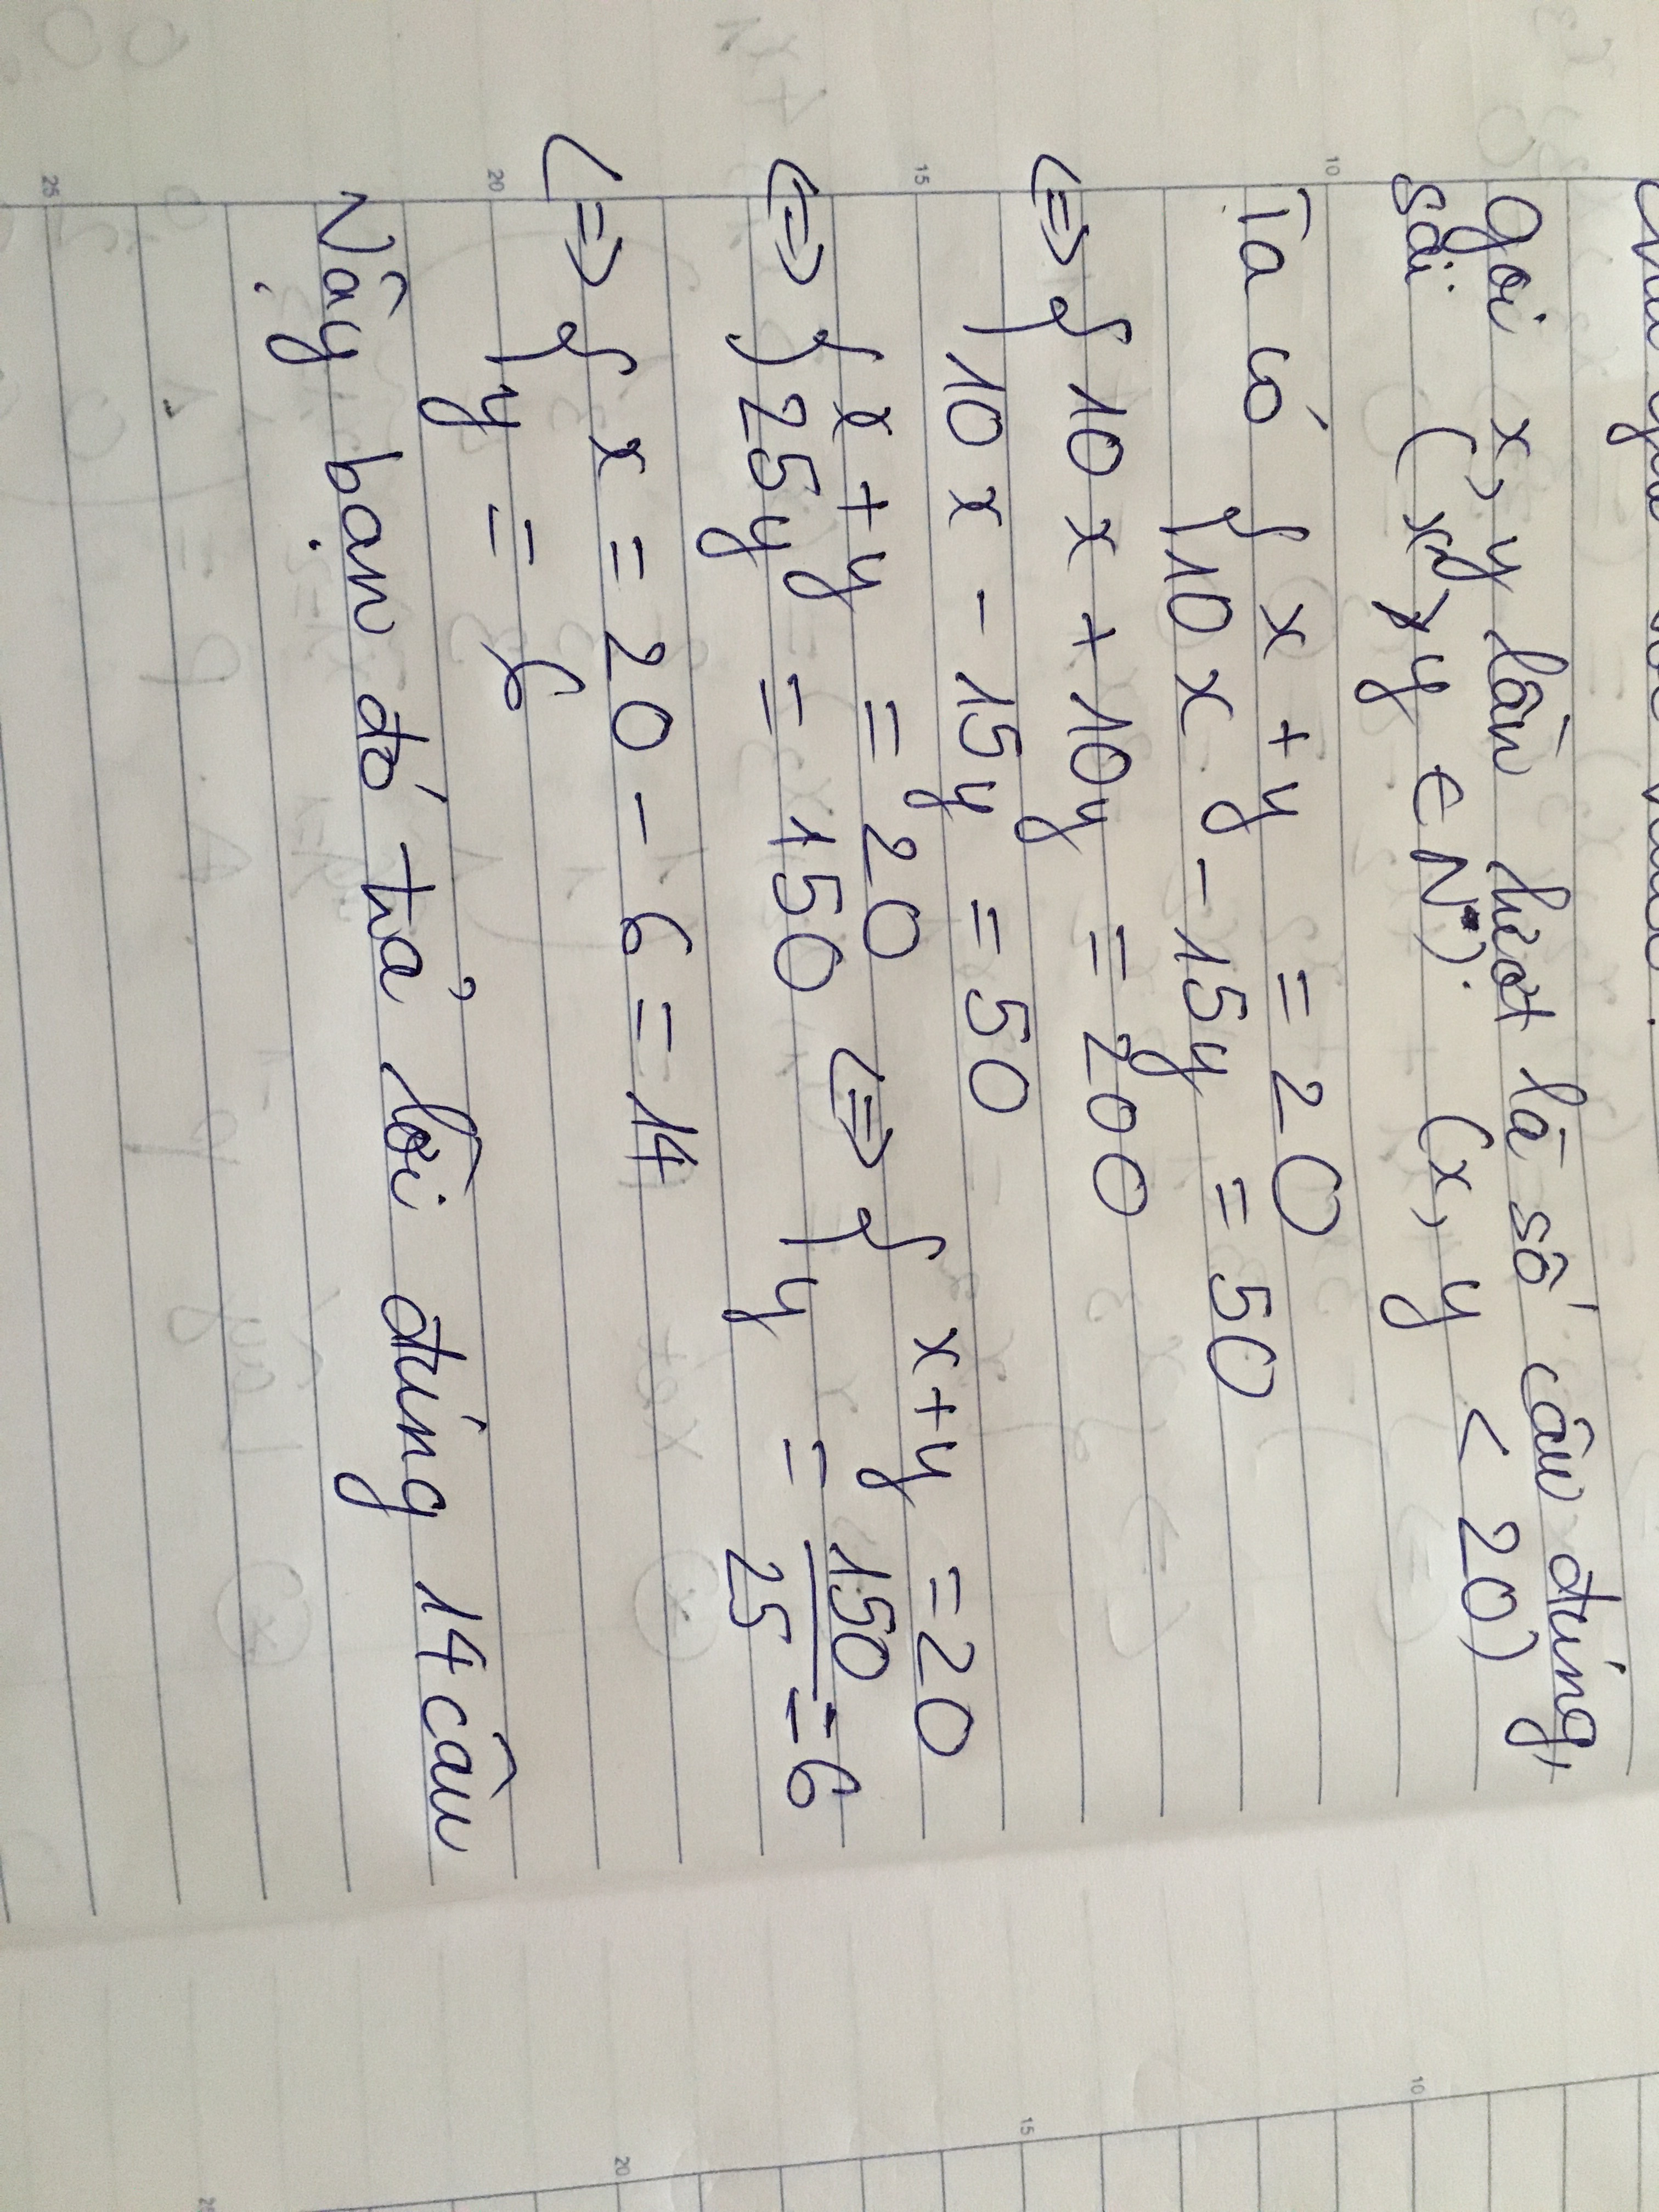 Gọi x, y lần lượt là số câu đúng,
sai (x, y ∈ N*). (x, y < 20)
Ta có { x + y = 20
{ 10x - 15y = 50
<=> { 10x + 10y = 200
10x - 15y = 50
<=> { x + y = 20
{ 25y = 150 <=> { x + y = 20
y = 150/25 = 6
<=> { x = 20 - 6 = 14
y = 6
Vậy bạn đó trả lời đúng 14 câu
10
15
20
25
10
15
20
25